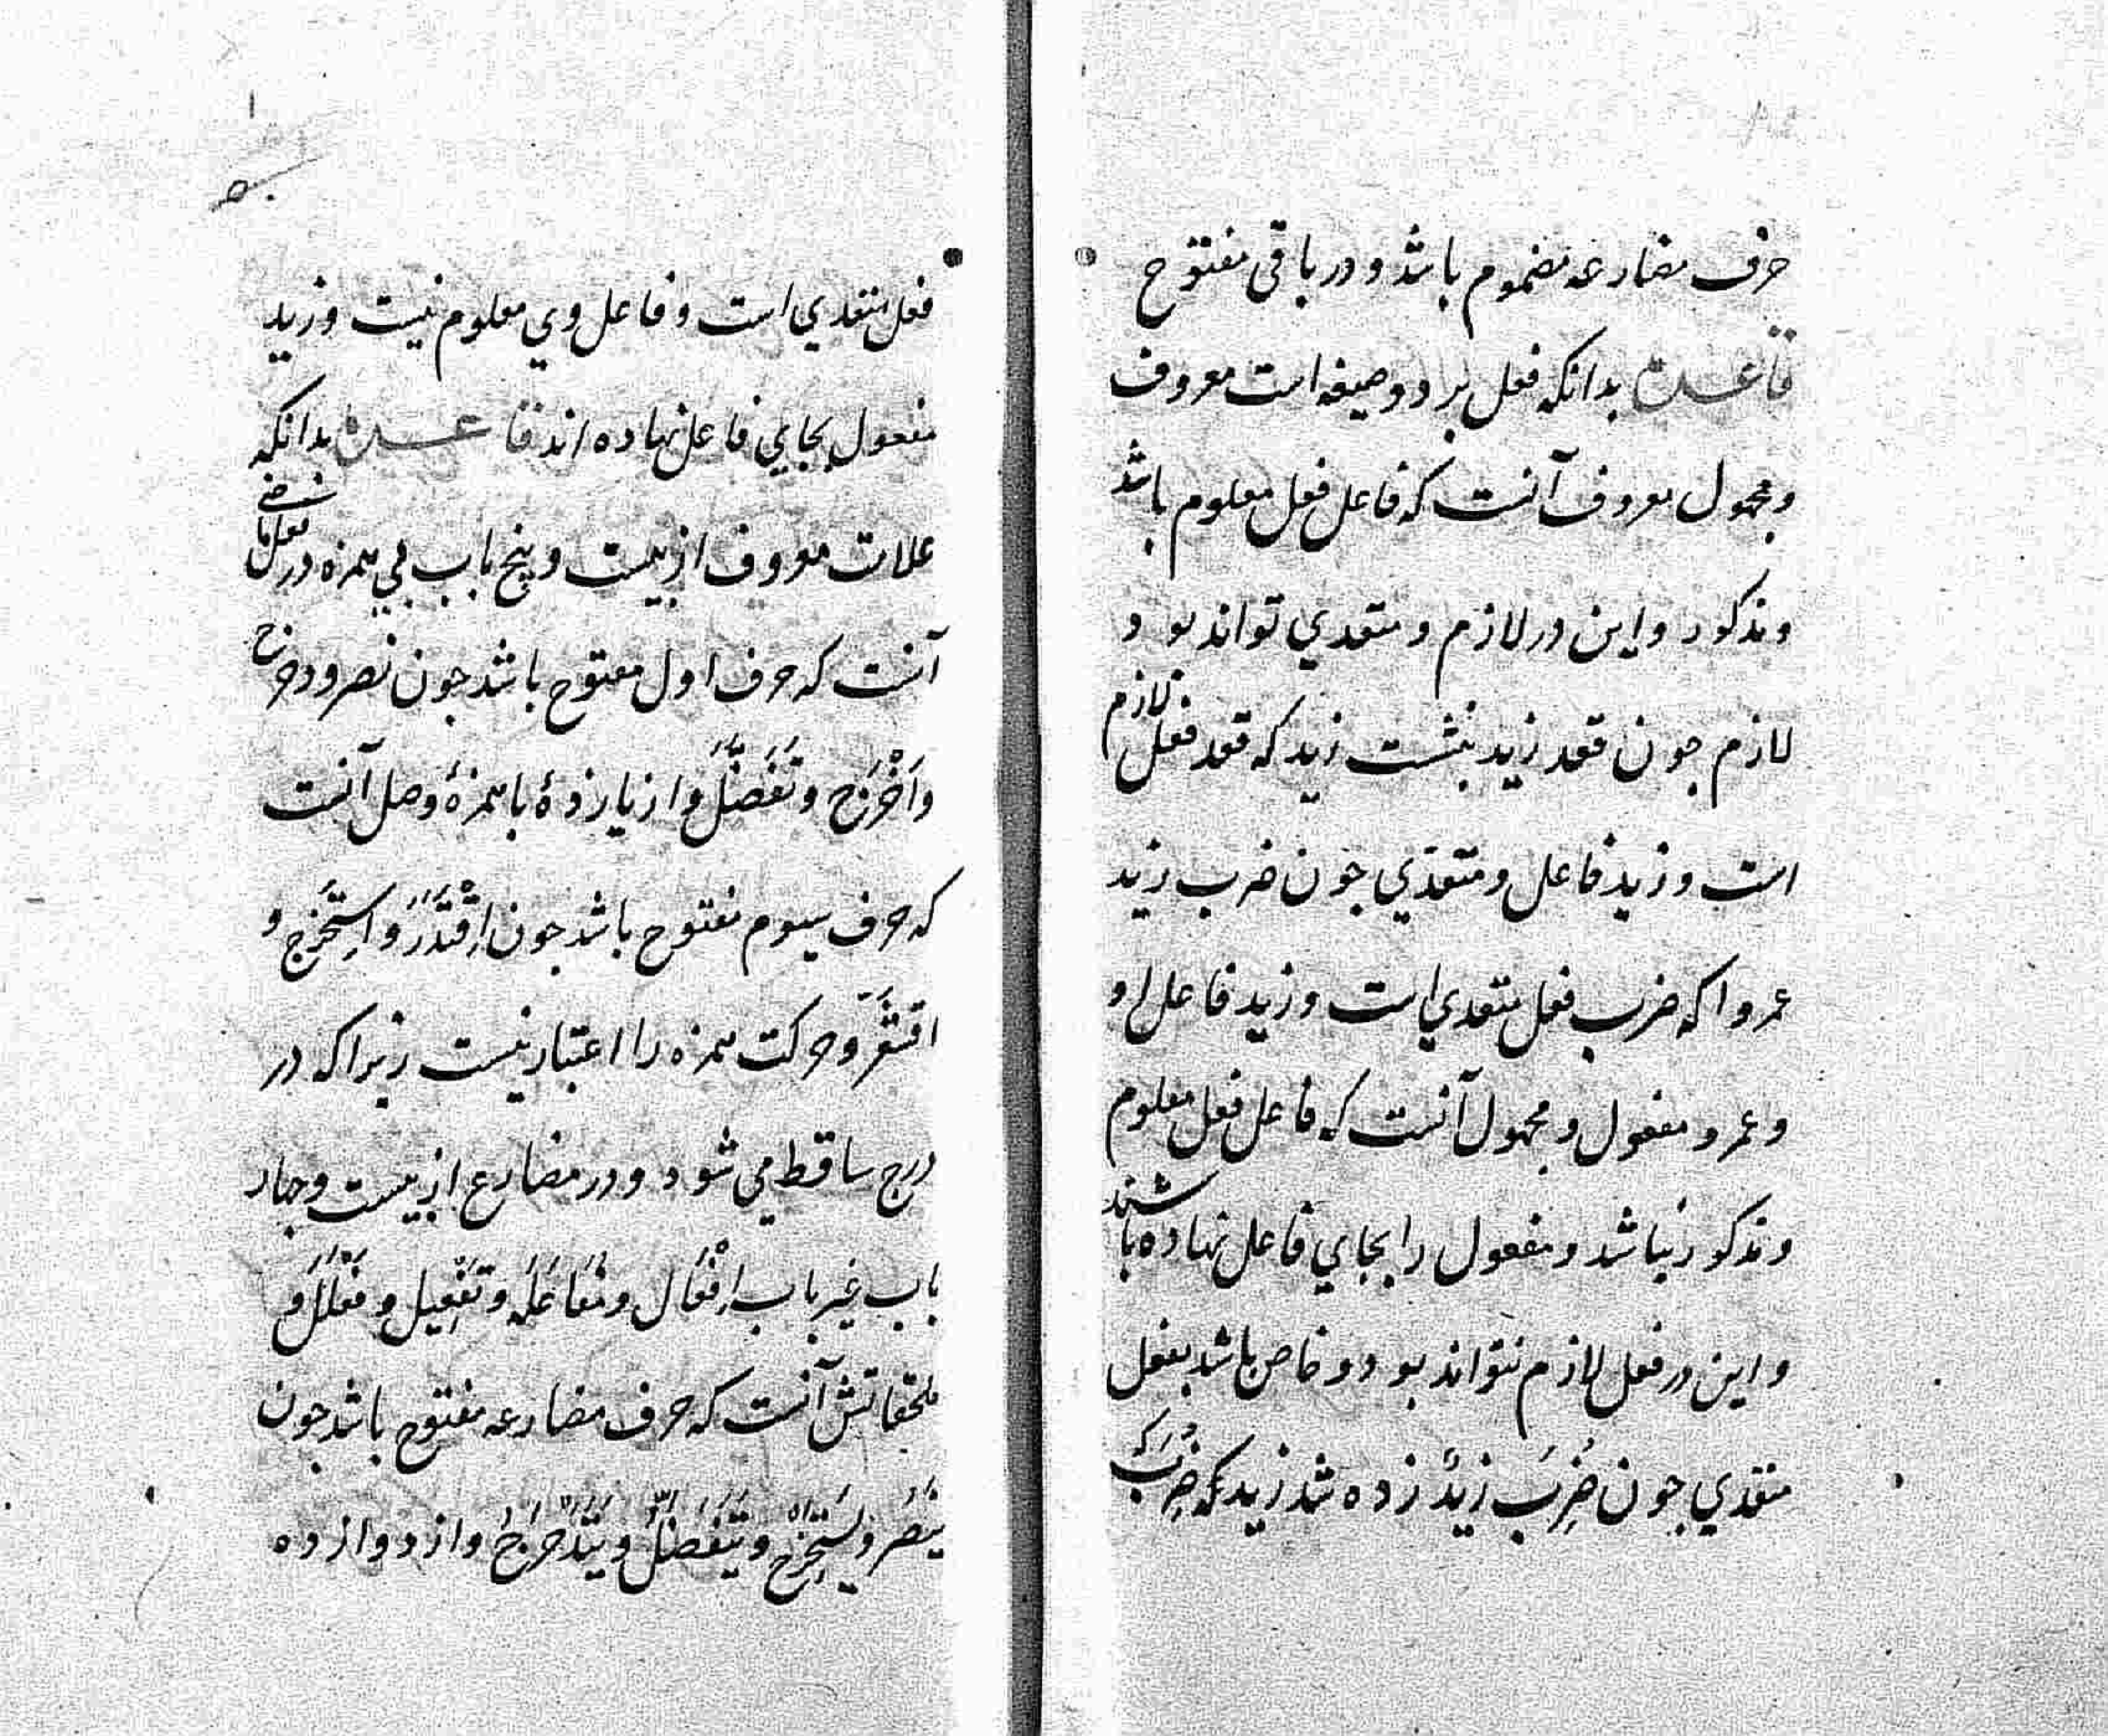 حرف مضارعه مضموم باشد و در باقی مفتوح
قاعده بدانکه فعل بر دو صیغه است معروف
و مجهول معروف آنست که فاعل فعل معلوم باشد
و مذکور و این در لازم و متعدي تواند بود
لازم جون قعد زید بنشست زید که قعد فعل لازم
است و زید فاعل و متعدّي جون ضرب زید
عمروا که ضرب فعل متعدي است و زید فاعل او
و عمرو مفعول و مجهول آنست که فاعل فعل معلوم
و مذکور نباشد و مفعول را بجاي فاعل نهاده باشند
و این در فعل لازم نتواند بود و خاص باشد بفعل
متعدي جون ضُرِبَ زیدٌ زده شد زید که ضُرِبَ
فعل متعدي است و فاعل وي معلوم نیست و زید
مفعول بجاي فاعل نهاده اند قاعده بدانکه
علامت معروف از بیست و پنج باب بي همزه در فعل ماضي
آنست که حرف اول مفتوح باشد جون نصر و دحرج
و اَخْرَجَ و تَفَضَّلَ و از یازدهٔ با همزهٔ وصل آنست
که حرف سیوم مفتوح باشد جون اِقْتَدَرَ و اِستَخرَج و
اقشَعَرَّ و حرکت همزه را اعتبار نیست زیرا که در
درج ساقط مي شود و در مضارع از بیست و جهار
باب غیر باب اِفْعَال و مُفَاعَلَه و تَفْعِیل و فَعْلَلَ و
ملحقاتش آنست که حرف مضارعه مفتوح باشد جون
یَنْصُرُ و یَسْتَخرِجُ و یَتَفَضَّلُ و یَتَدَحْرَجُ و از دوازده